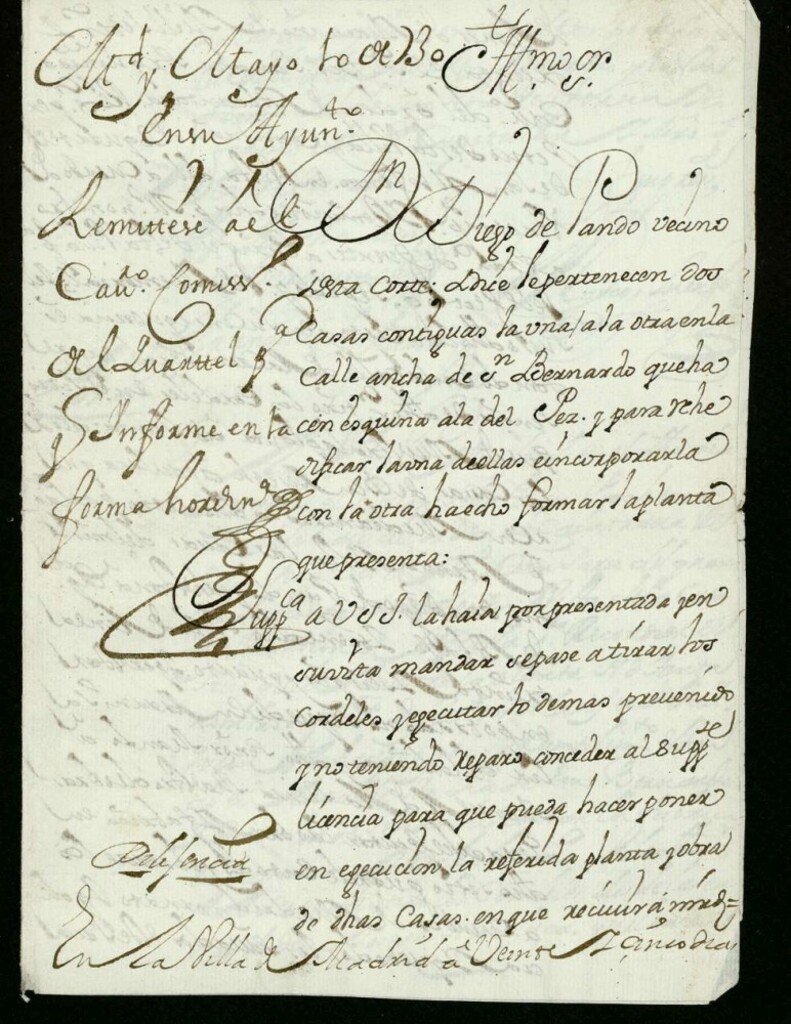 Md y Mayo 10 de 130
en su Ayunto
Remitese a el
Cavo. Comissro.
del Quarttel pa
q Informe en la
forma hordina
Illmo Sr.
Dn Diego de Pando vecino
desta Corte: Dice le pertenecen dos
Casas contiguas la vna / a la otra en la
Calle ancha de Sn Bernardo que ha
cen esquina a la del Pez. y para rehe
dificar la vna de ellas e incorporarla
con la otra ha echo formar la planta
que presenta:
Suppca a V S I. la haia por presentada y en
su vista mandar se pase a tirar los
Cordeles y egecuttar lo demas prevenido
y no teniendo reparo conceder al Suppte
licencia para que pueda hacer poner
en egecucion la referida planta y obra
de dhas Casas. en que recivira mrd=
Delixencia
En la Villa de Madrid a Veinte y cinco dias